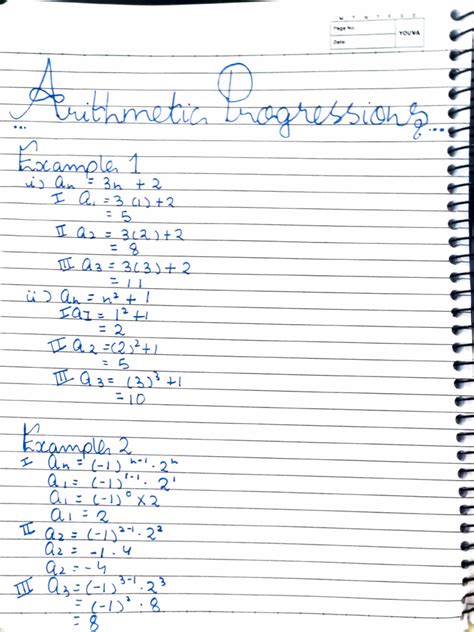 M T W T F S S
Page No.:
Date:
YOUVA
Arithmetic Progressions
Example 1
i) an = 3n + 2
I a1 = 3(1)+2
= 5
II a2 = 3(2)+2
= 8
III a3 = 3(3)+2
= 11
ii) an = n² + 1
I a1 = 1²+1
= 2
II a2 = (2)²+1
= 5
III a3 = (3)³+1
= 10
Example 2
I an = (-1)ⁿ⁻¹ · 2ⁿ
a1 = (-1)¹⁻¹ · 2¹
a1 = (-1)⁰ × 2
a1 = 2
II a2 = (-1)²⁻¹ · 2²
a2 = -1 · 4
a2 = -4
III a3 = (-1)³⁻¹ · 2³
= (-1)² · 8
= 8